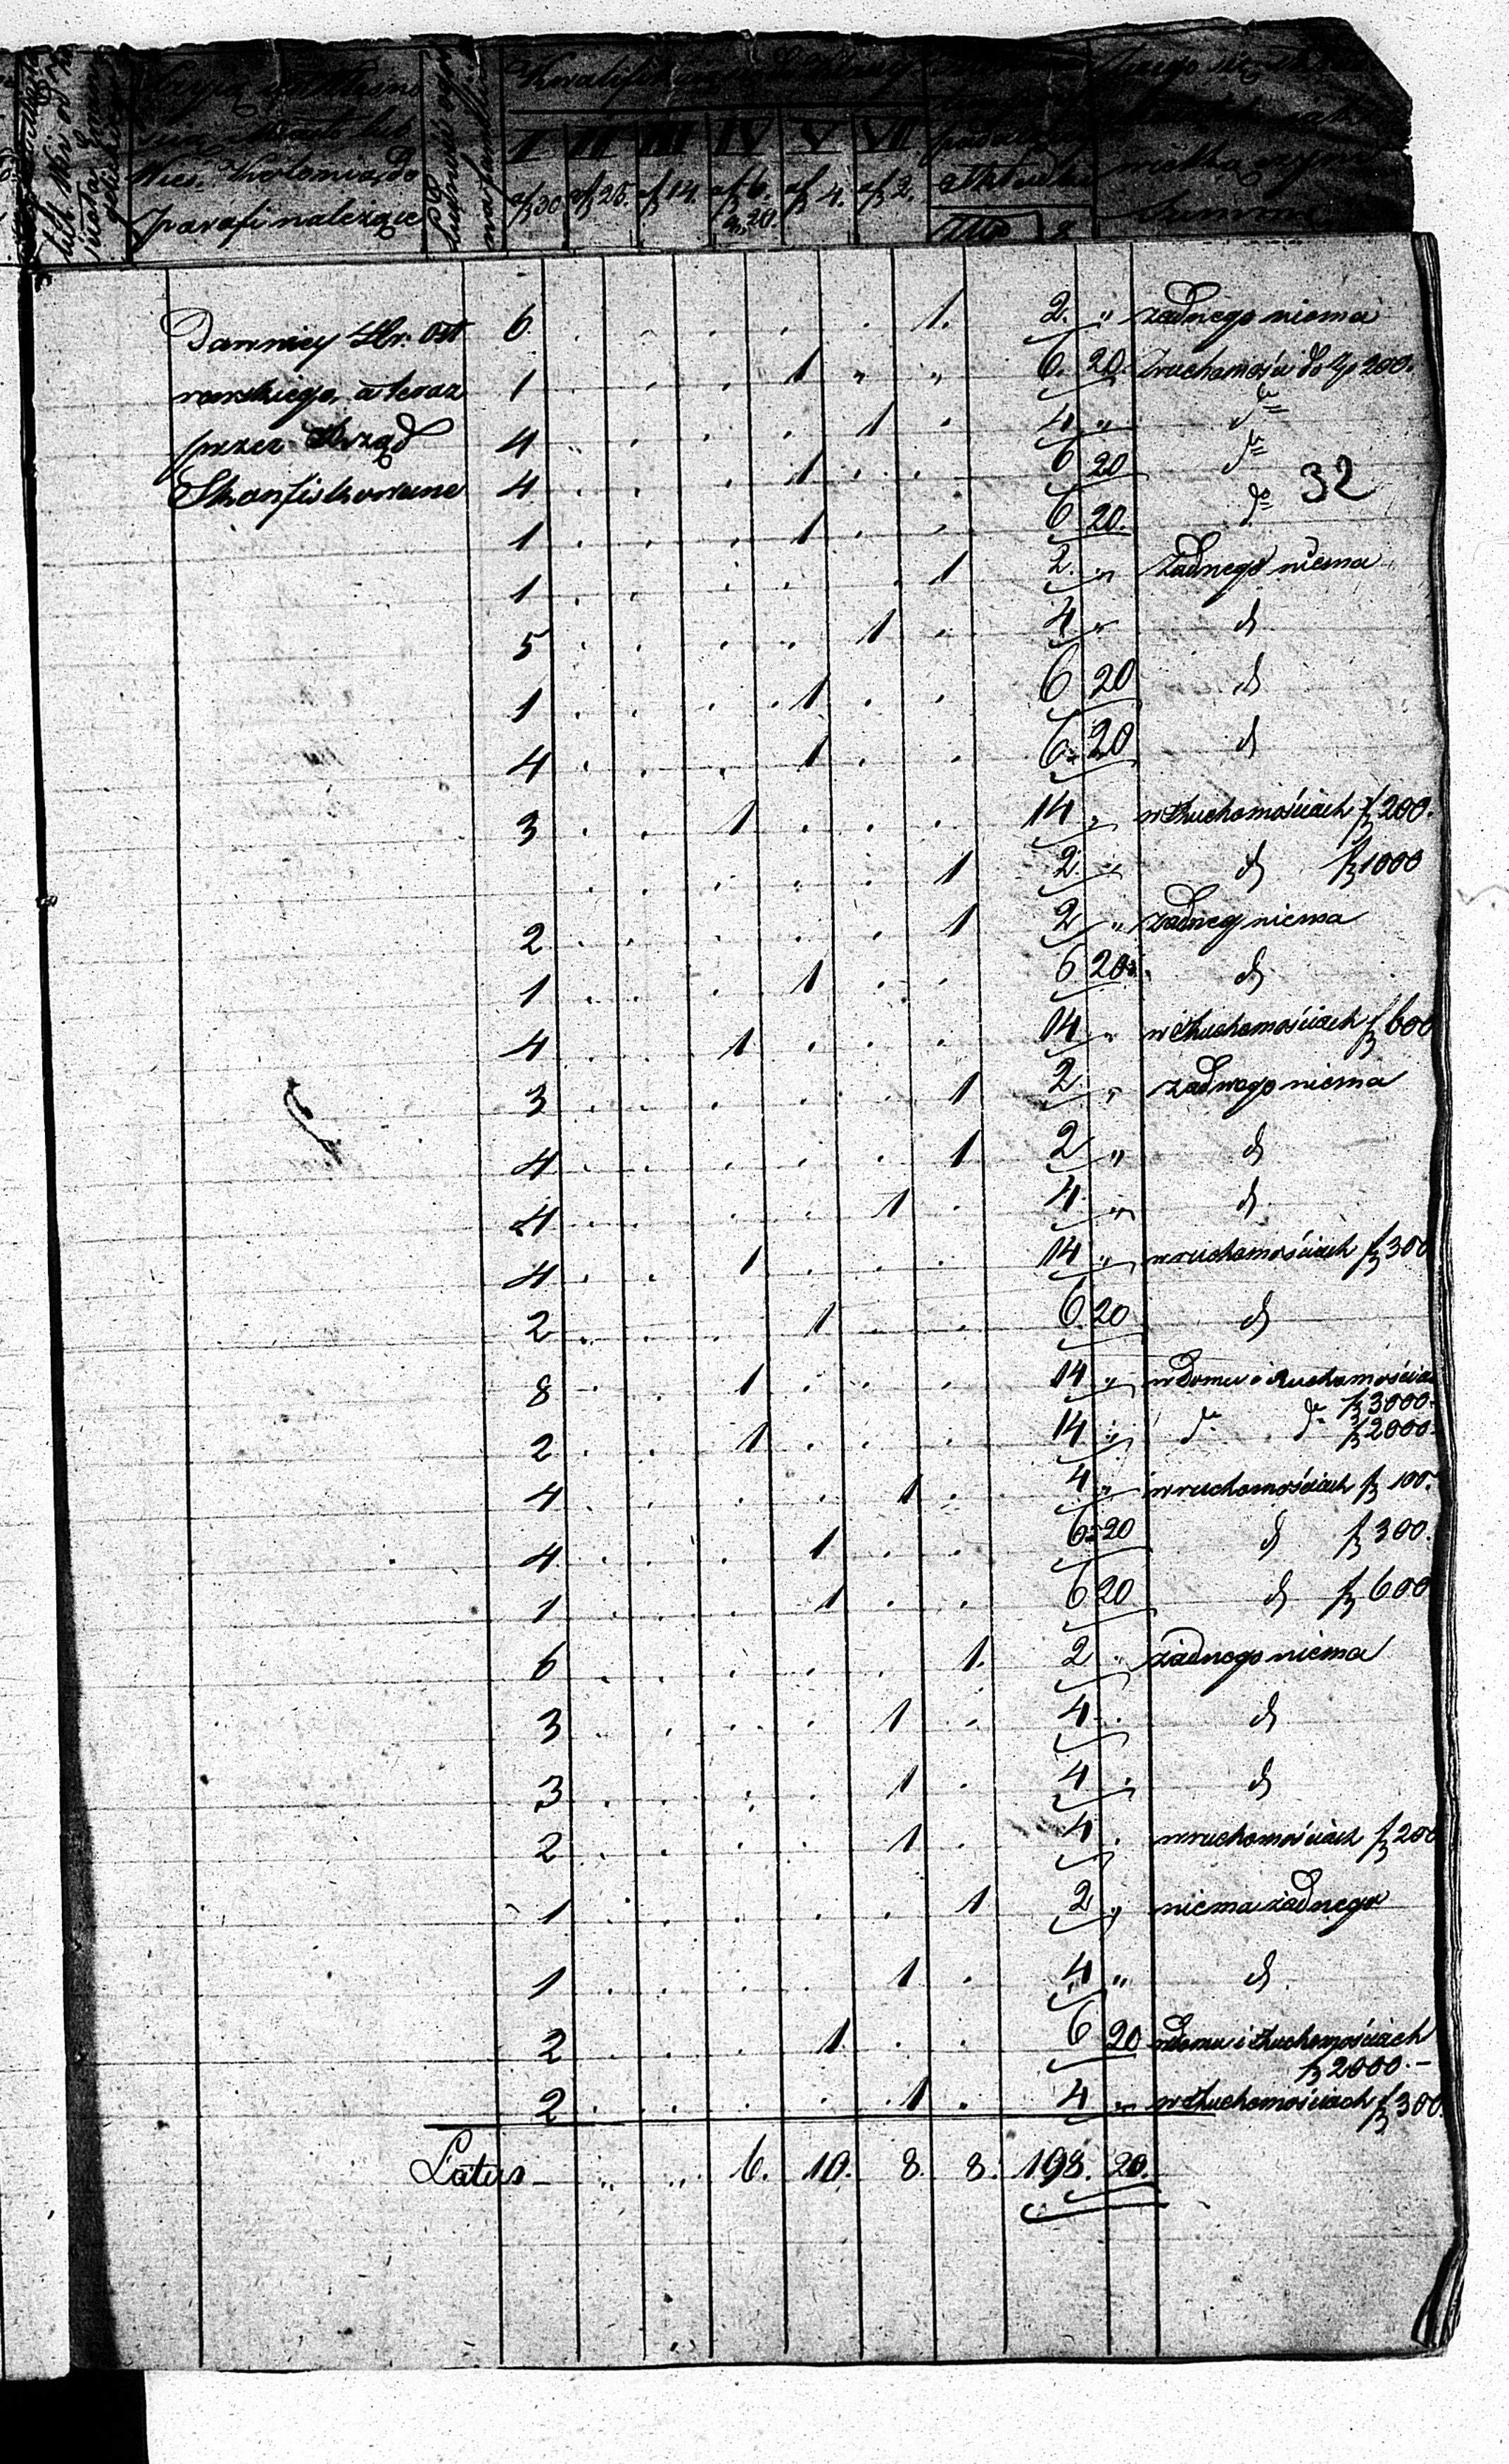 Czyją iest własno
Wieś, Kolonia, do
parafi należące
Kwalifikuiącą do Klassy
I II III IV V VI
zł 30 zł 14. zł 6. zł 4. zł 2.
g. 20.
podatku
Dawniey Hr: Ost 6 . . . . . 1. 2. " żadnego niema
rowskiego, a teraz 1 . . . 1 " " 6. 20. Zruchomościa do Zp 200.
przez Rząd 4 " . . . 1 . 4 " do
Skonfiskowane 4 . . . 1 . . 6 20 do
32
1 . . . 1 . . 6 20. do
1 . . . . . 1 2. " Żadnego niema
5 . . . . 1 . 4 " d
1 . . . 1 . . 6 20 d
4 . . . 1 . . 6 20 d
3 . . 1 . . . 14 " w Ruchomościach zł 200.
. . . . . 1 2. " d zł 1000
2 . . . . . 1 2 " żadneg niema
1 . . . 1 . . 6 20 d
4 . . 1 . . . 14 " w Ruchomościach zł 600
3 . . . . . 1 2 " żadnego niema
4 . . . . . 1 2 " d
4 . . . . 1 . 4 " d
4 . . 1 . . . 14 " w ruchomościach zł 300
2 . . . 1 . . 6. 20 d
8 . . 1 . . . 14 " w Domu i Ruchomościac
zł 3000.
2 . . 1 . . . 14 " do do zł 2000.
4 . . . . 1 . 4 " w ruchomościach zł 100.
4 . . . 1 . . 6 20 d zł 300.
1 . . . 1 . . 6 20 d zł 600
6 . . . . . 1. 2 " żadnego niema
3 . . . . 1 . 4 . d
3 . . . . 1 . 4 . d
2 . . . . 1 . 4 . w ruchomościach zł 200
1 . . . . . 1 2 " niema żadnego
1 . . . . 1 . 4 " d
2 . . . 1 . . 6 20 w domu i Ruchomościach
zł 2000.-
2 . . . . 1 . 4 " w Ruchomościach zł 300.
Latus - " " 6. 10. 8. 8. 198. 20.